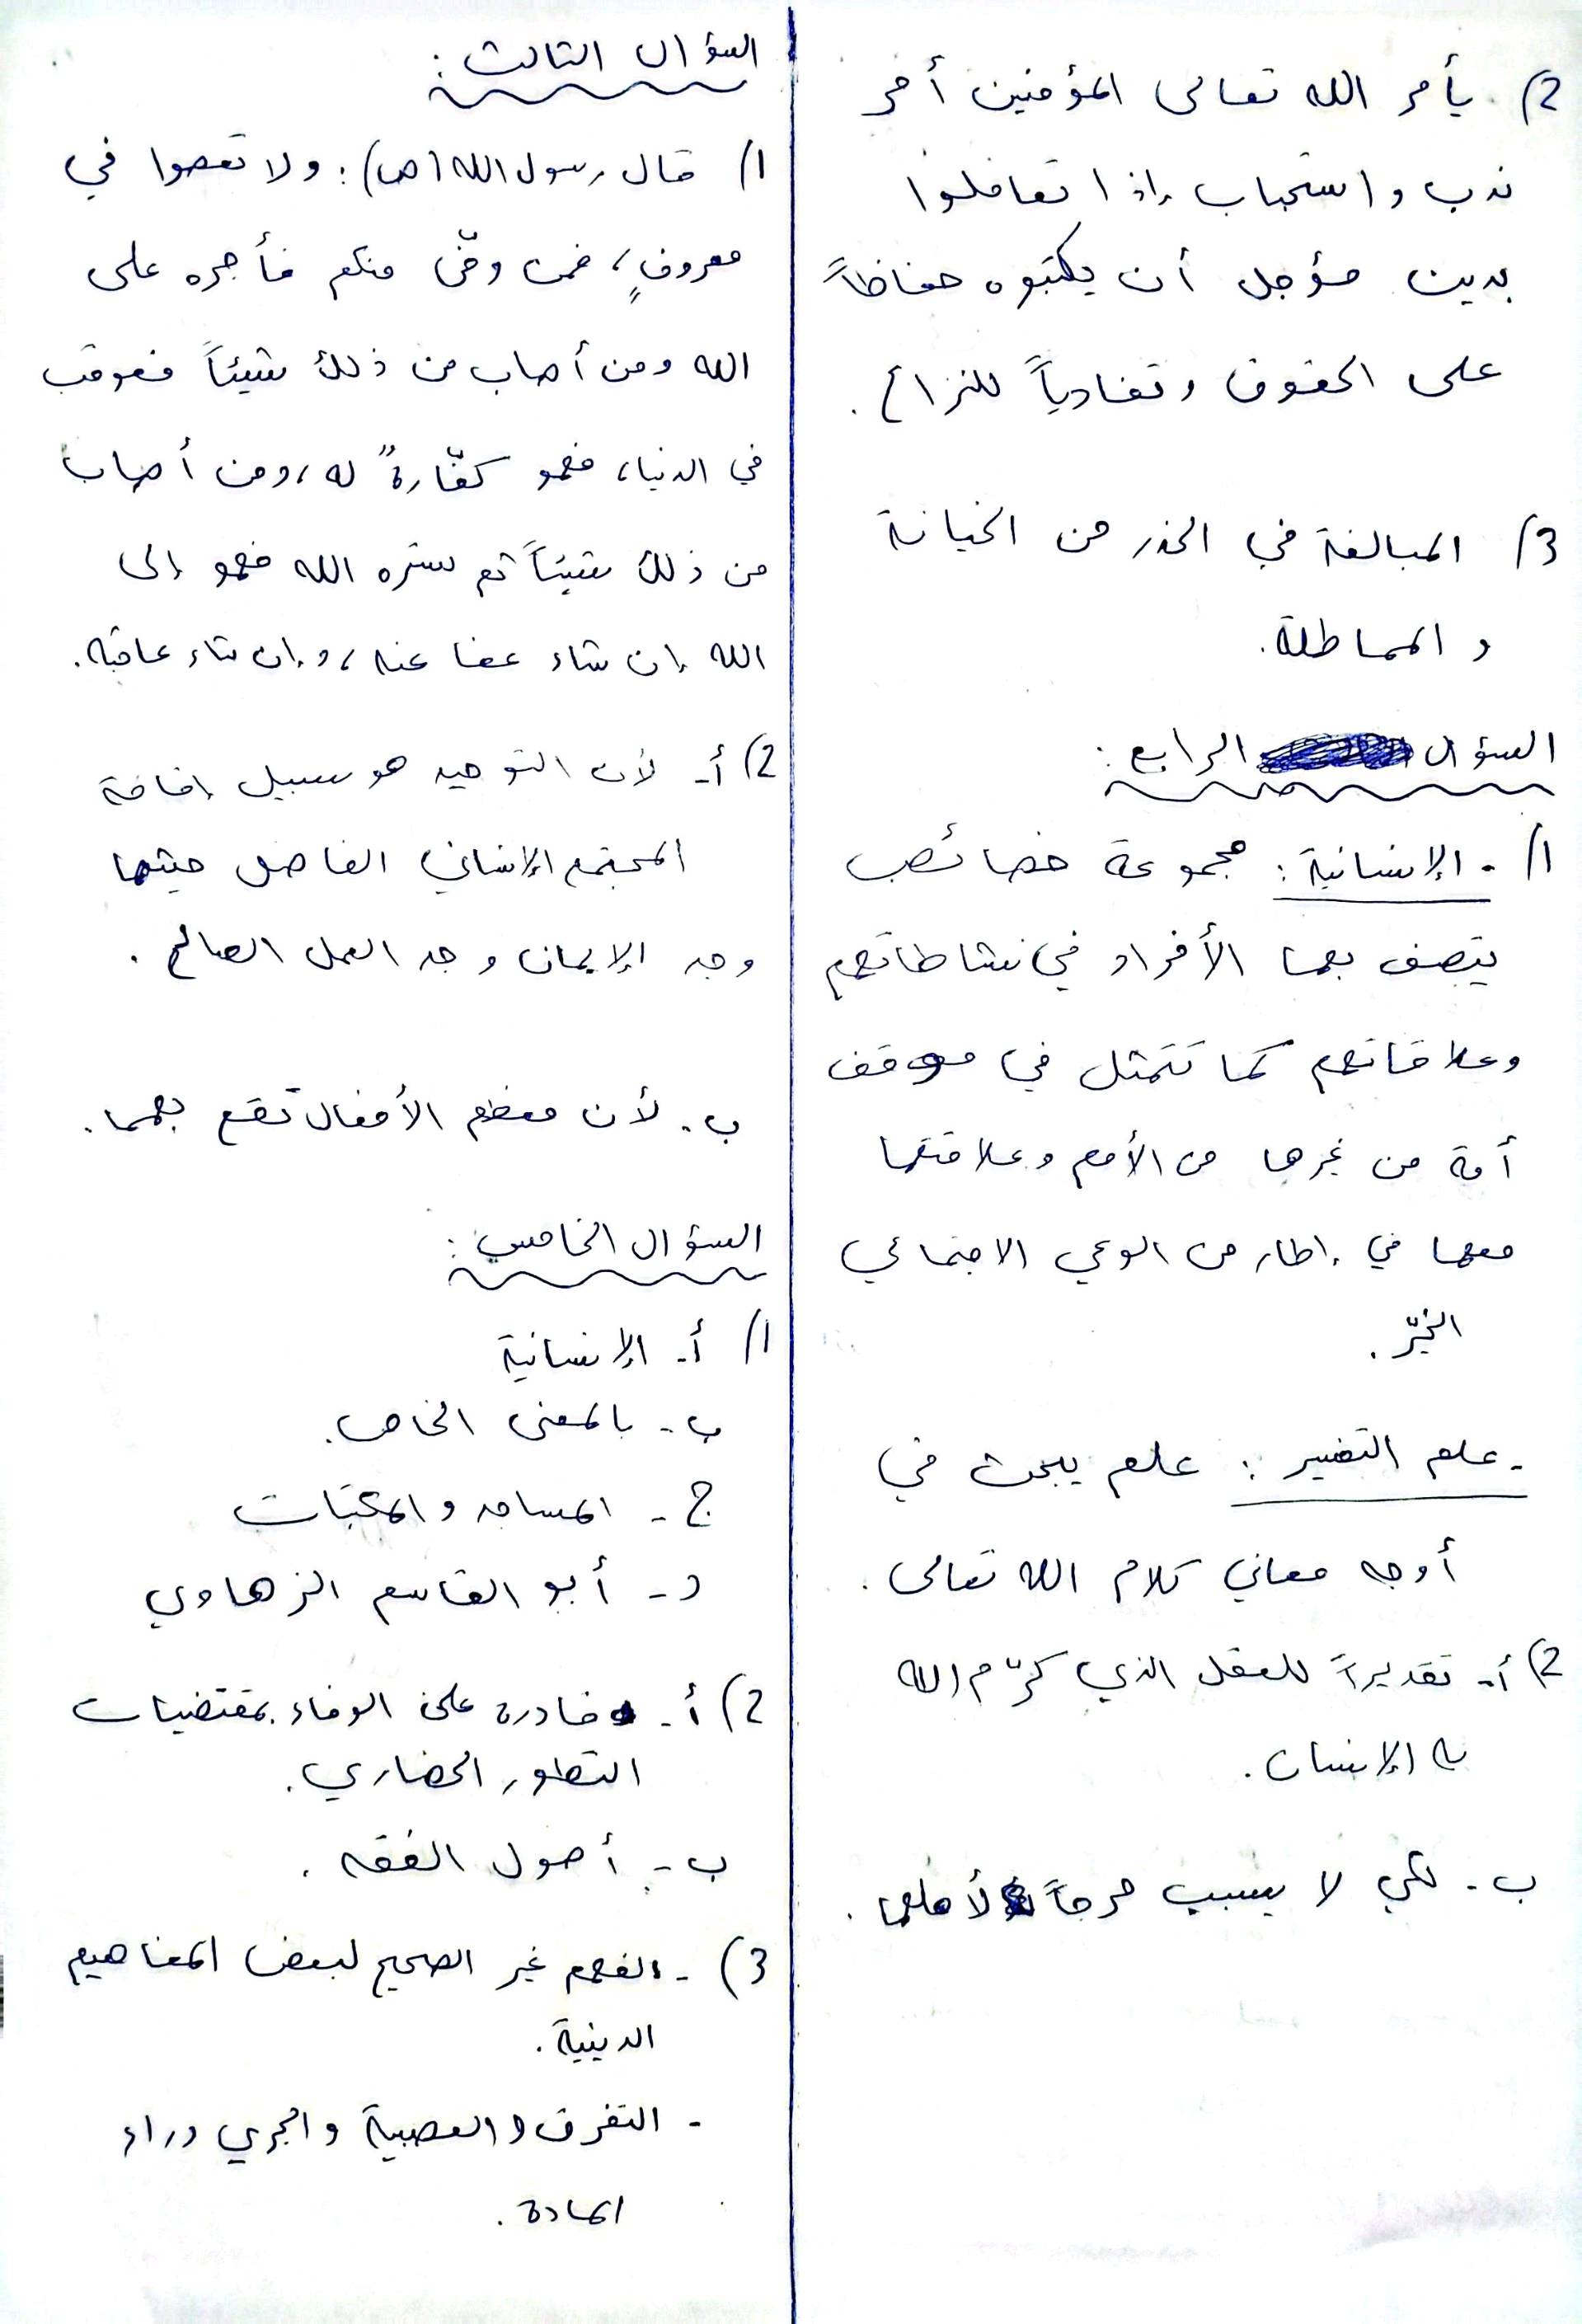 2) يأمر الله تعالى المؤمنين أمر
ندب واستحباب إذا تعاملوا
بدين مؤجل أن يكتبوه حفاظاً
على الحقوق وتفادياً للنزاع.
3) المبالغة في الحذر من الخيانة
و المماطلة.
السؤال الرابع:
1) - الإنسانية: مجموعة خصائص
يتصف بها الأفراد في نشاطاتهم
وعلاقاتهم كما تتمثل في موقف
أمة من غيرها من الأمم وعلاقتها
معها في إطار من الوعي الاجتماعي
الخيّر.
- علم التفسير: علم يبحث في
أوجه معاني كلام الله تعالى.
2) أ- تقديراً للعقل الذي كرّم الله
به الإنسان.
ب- لكي لا يسبب حرجاً لأهلها.
السؤال الثالث:
1) قال رسول الله (ص): ولا تعصوا في
معروفٍ، فمن وفّى منكم فأجره على
الله ومن أصاب من ذلك شيئاً فعوقب
في الدنيا، فهو كفّارةٌ له، ومن أصاب
من ذلك شيئاً ثم ستره الله فهو إلى
الله إن شاء عفا عنه، وإن شاء عاقبه.
2) أ- لأن التوحيد هو سبيل إقامة
المجتمع الإنساني الفاضل حيثما
وجد الإيمان وجد العمل الصالح.
ب- لأن معظم الأفعال تقع بهما.
السؤال الخامس:
1) أ- الإنسانية
ب- بالمعنى الخاص.
ج- المساجد والمكتبات
د- أبو القاسم الزهاوي
2) أ- قادرة على الوفاء بمقتضيات
التطور الحضاري.
ب- أصول الفقه.
3) - الفهم غير الصحيح لبعض المفاهيم
الدينية.
- التفرق والعصبية والجري وراء
المادة.